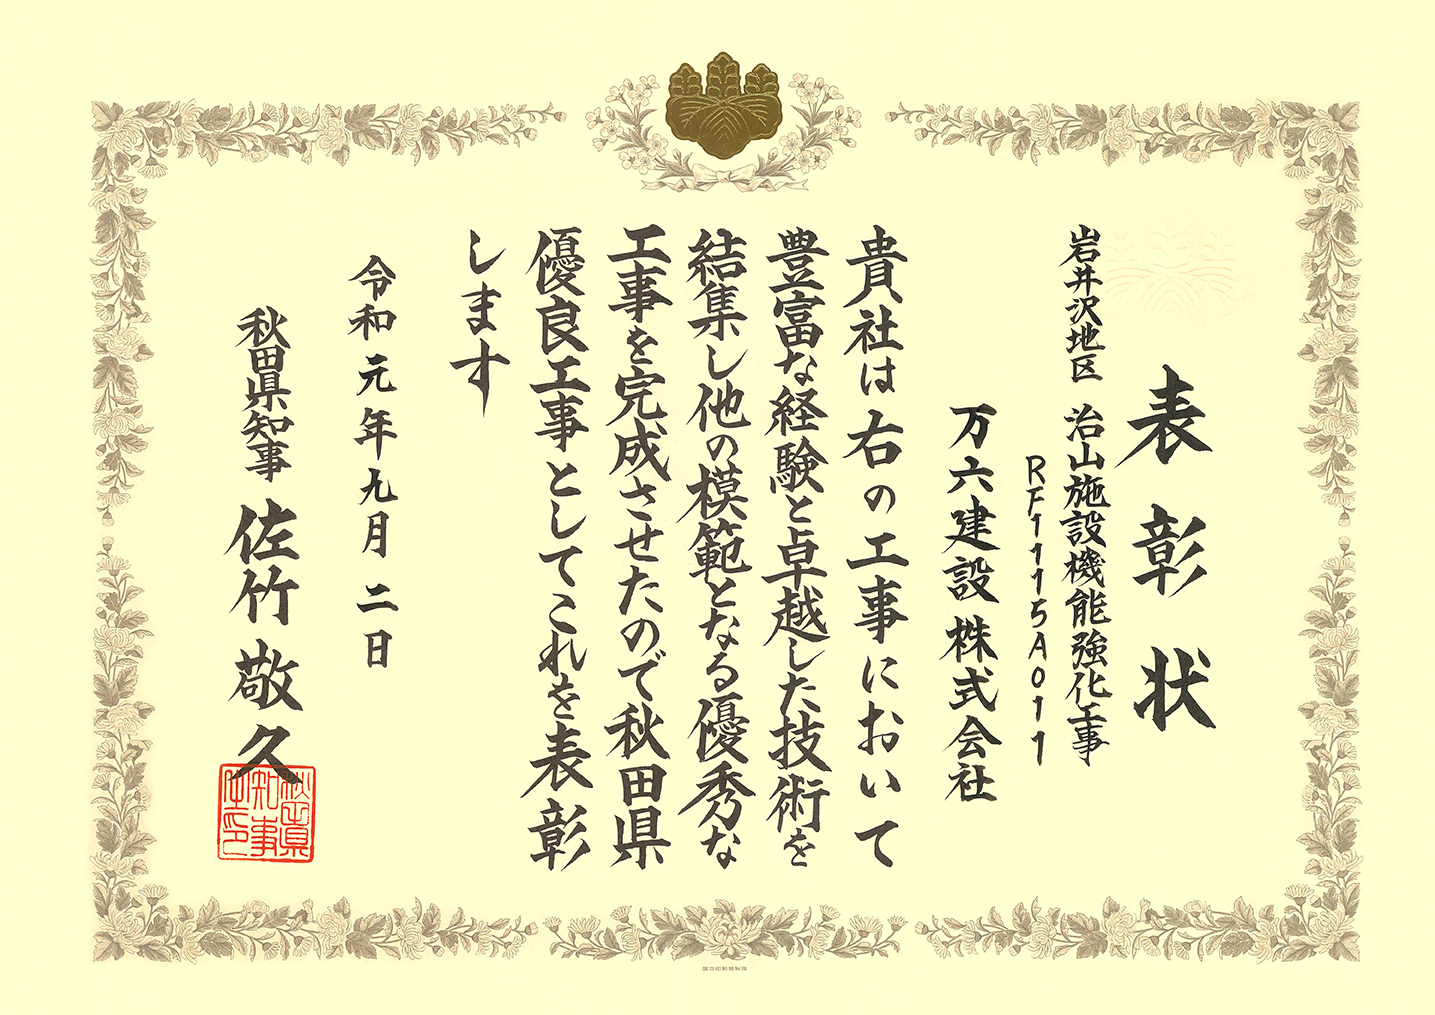 表彰状
岩井沢地区 治山施設機能強化工事
RF1115A011
万六建設株式会社
貴社は右の工事において
豊富な経験と卓越した技術を
結集し他の模範となる優秀な
工事を完成させたので秋田県
優良工事としてこれを表彰
します
令和元年九月二日
秋田県知事 佐竹敬久
国立印刷局製造